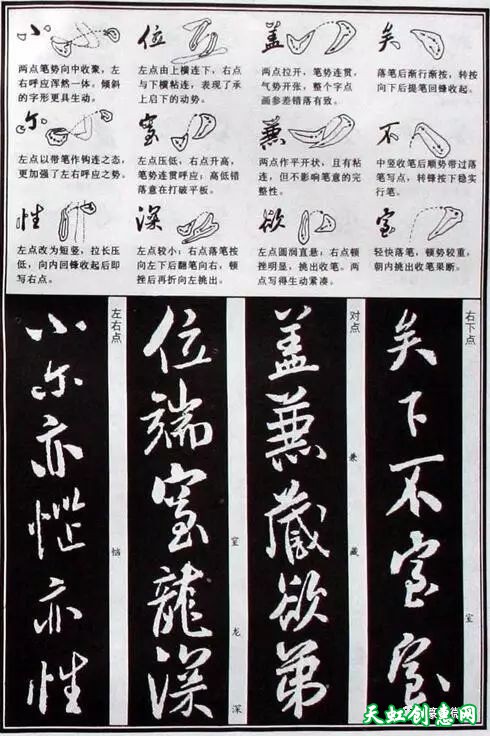 小
两点笔势向中收聚，左
右呼应浑然一体。倾斜
的字形更具生动。
位
左点由上横连下，右点
与下横粘连，表现了承
上启下的动势。
盖
两点拉开，笔势连贯，
气势开张，整个字点
画参差错落有致。
矣
落笔后渐行渐按，转按
向下后提笔回锋收起。
尔
左点以带笔作钩连之态，
更加强了左右呼应之势。
室
左点压低，右点升高，
笔势连贯呼应；高低错
落意在打破平板。
兼
两点作平开状，且有粘
连，但不影响笔意的完
整性。
不
中竖收笔后顺势带过落
笔写点，转锋按下稳实
行笔。
性
左点改为短竖，拉长压
低，向内回锋收起后即
写右点。
深
左点较小；右点落笔按
向左下后翻笔向右，顿
挫后再折向左挑出。
欲
左点圆润直悬；右点顿
挫明显，挑出收笔。两
点写得生动紧凑。
室
轻快落笔，顿势较重，
朝内挑出收笔果断。
右下点
矣下不室室
室
对点
盖兼藏欲弟
兼 藏
位端室龍深
室 龙 深
左右点
小尔亦恼亦性
恼
天虹创意网